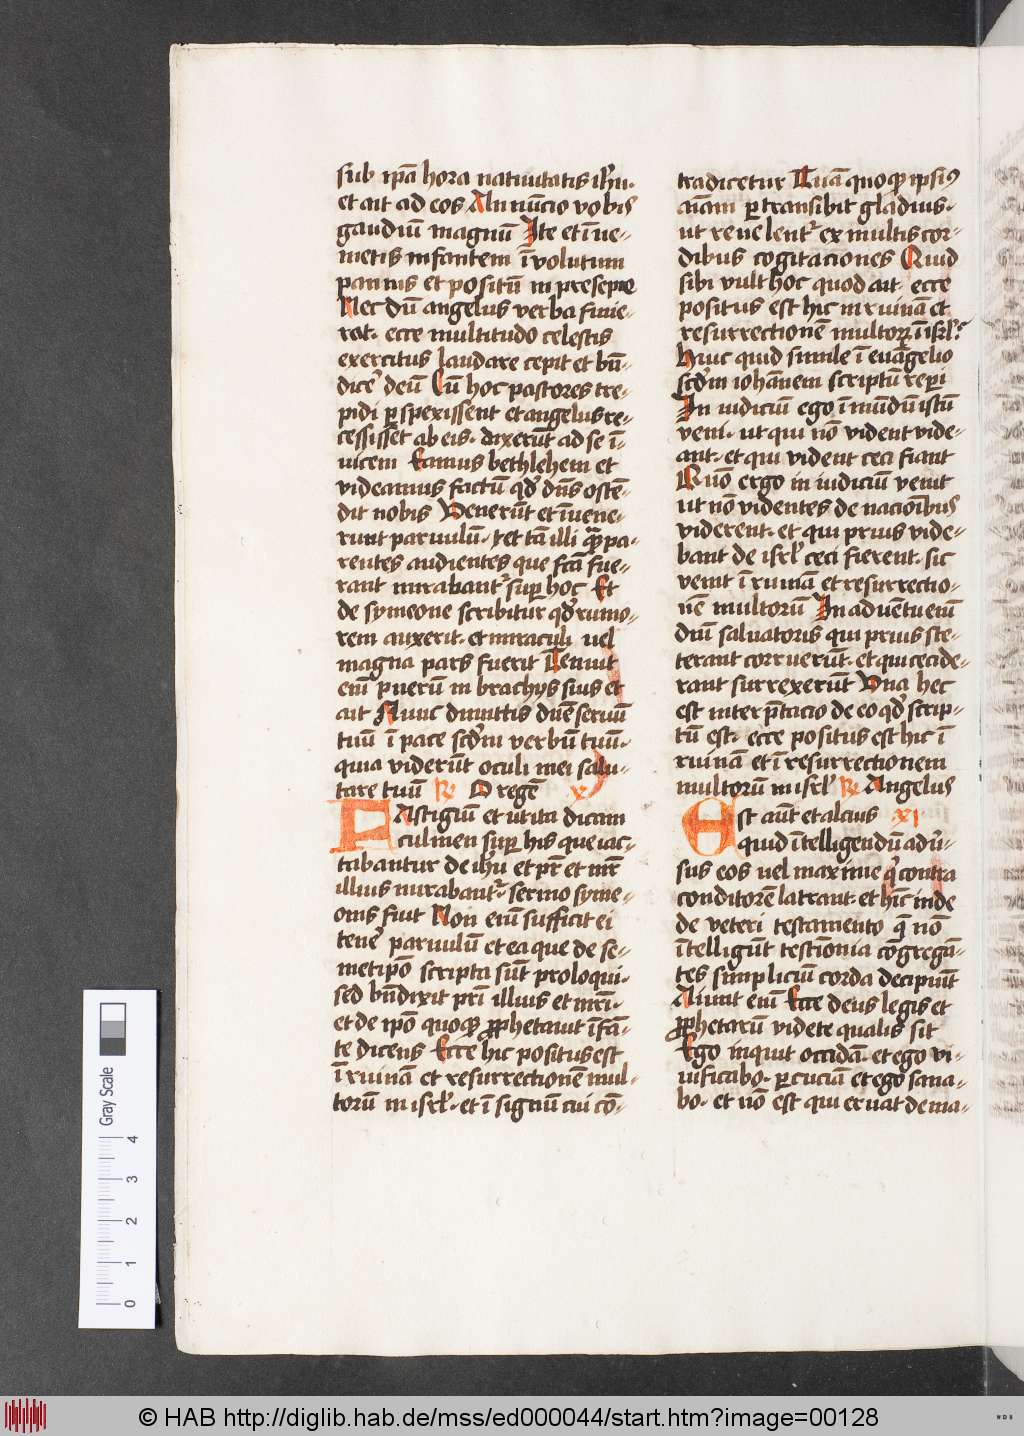 sub ip̄a hora natiuitatis ih̄u·
et ait ad eos Annūcio vobis
gaudiū magnū Ite et īue-
nietis infantem īvolutum
pannis et positū in presepio
Nec dū angelus verba finie-
rat· ecce multitudo celestis
exercitus laudare cepit et bn̄-
dice᷑ deū Cū hoc pastores tre-
pidi ꝑspexissent et angelus re-
cessisset ab eis· dixerūt ad se ī-
uicem Eamus bethlehem et
videamus factū qd᷑ dn̄s osten̄-
dit nobis Venerūt et īuene-
runt paruulū· et tā illi qꝫ pa-
rentes audientes que fcā fue-
rant mirabant᷑ suꝑ hoc Et
de symeone scribitur qd᷑ rumo-
rem auxerit· et miraculi vel
magna pars fuerit Tenuit
eiū puerū in brachijs suis et
ait Nunc dimittis dn̄e seruū
tuū ī pace scd᷑m verbū tuū·
quia viderūt oculi mei salu-
tare tuū ℟ O regē x
FAstigiū et vtita dicam
culmen suꝑ his que iac-
tabantur de ih̄u et pr̄ et mr̄e
illius mirabant᷑· sermo syme-
onis fiut Non eni᷑ sufficit ei
tene᷑ paruulū et ea que de se-
metip̄o scripta sūt proloqui·
sed bn̄dixit pr̄i illius et mr̄i·
et de ip̄o quoqꝫ ꝓphetauit īfā-
te dicens Ecce hic positus est
ī ruinā et resurrectionē mul-
torū in isrl᷑· et ī signū cui cō-
tradicetur Tuā quoqꝫ ipsiꝰ
aīam ꝑtransibit gladius·
ut reuelent᷑ ex multis cor-
dibus cogitaciones Quid
sibi vult hoc quod ait· ecce
positus est hic in ruinā et
resurrectionē multoꝝ ī isrl᷑?
Huic quid simile ī euāgelio
scd᷑m iohānem scriptū reperi
In iudiciū ego ī mūdū istū
veni· ut qui nō vident vide-
ant· et qui vident ceci fiant
Quō ergo in iudiciū venit
ut nō videntes de nacionībus
viderent· et qui prius vide-
bant de isrl᷑ ceci fierent· sic
venit ī ruinā et resurrectio-
nē multorū In aduētu eni᷑
dn̄i saluatoris qui prius ste-
terant corruerūt· et qui cecide-
rant surrexerūt Vna hec
est interp̄tacio de eo qd᷑ scrip-
tū est· ecce positus est hic ī
ruinā et ī resurrectionem
multorum in isrl᷑ ℟ Angelus
Est aūt et alcius xi
quid ītelligendū adū-
sus eos vel maxime q᷑ contra
conditorē latrant· et hīc inde
de veteri testamento q̄ nō
ītelligūt testīonia cōgregā-
tes simpliciū corda decipiūt
Aiunt eni᷑ Ecce deus legis et
ꝓphetarū videte qualis sit
Ego inquit occidā· et ego vi-
uificabo· ꝑcuciā et ego sana-
bo· et nō est qui eruat de ma-
Gray Scale
0 1 2 3 4
© HAB http://diglib.hab.de/mss/ed000044/start.htm?image=00128